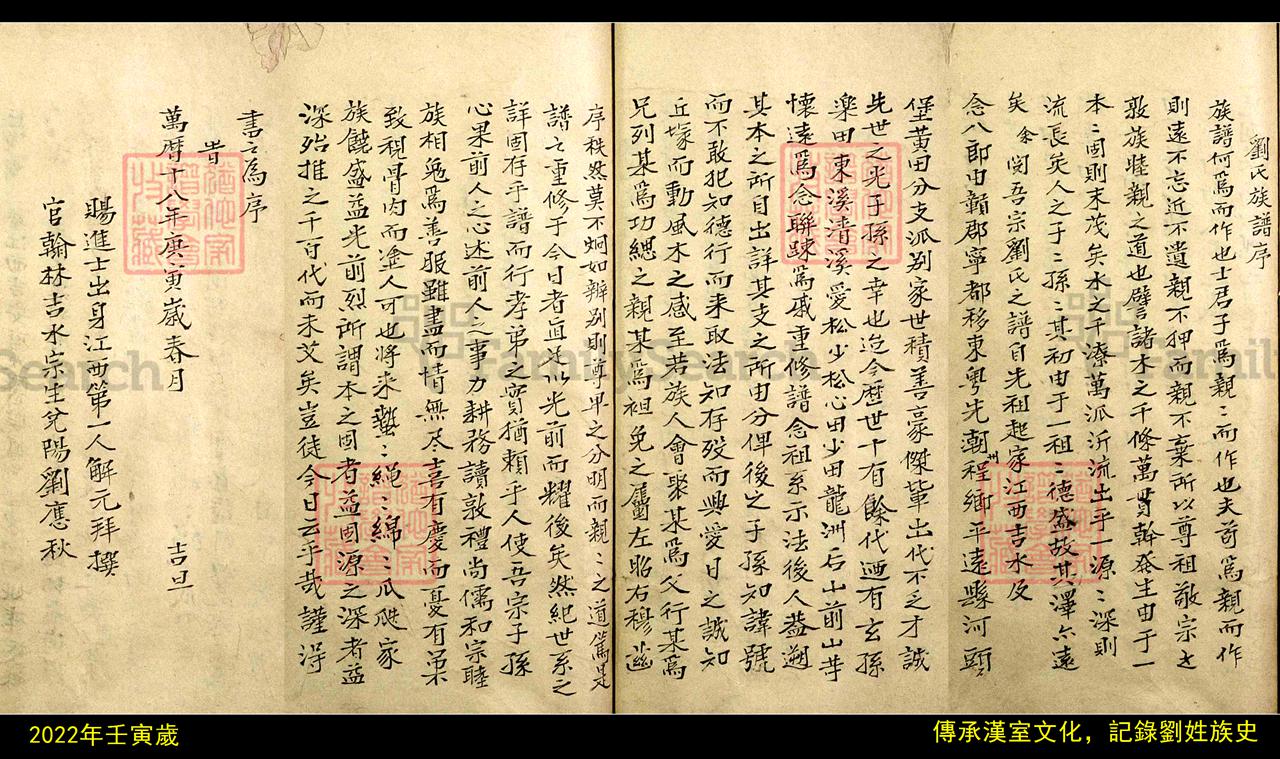 劉氏族譜序
族譜何爲而作也士君子爲親〻而作也夫苟篤親而作
則遠不忘近不遺親不狎而親不棄所以尊祖敬宗也
敦族睦親之道也譬諸木之千條萬貫幹發生由于一
本〻固則末茂矣水之千溱萬派沂流出乎一源〻深則
流長矣人之子〻孫〻其初由于一祖〻德盛故其澤亦遠
矣余閱吾宗劉氏之譜自先祖起家江西吉水及
念八郎由贛郡寧都移東粵先潮州程鄉平遠縣河頭
堡黃田分支派別家世積善豪傑輩出代不乏才誠
先世之光子孫之幸也迨今歷世十有餘代廼有玄孫
樂田東溪清溪愛松少松心田少田龍洲石山前山等
懷遠爲念聯踈爲戚重修譜念祖系示法後人葢遡
其本之所自出詳其支之所由分俾後之子孫知諱號
而不敢犯知德行而来取法知存歿而興愛日之誠知
丘塚而動風木之感至若族人會聚某爲父行某爲
兄列某爲功緦之親某爲袒免之屬左昭右穆茲
序秩然莫不炯如辨別則尊卑之分明而親〻之道篤是
譜之重修于今日者直足以光前而耀後矣然紀世系之
詳固存乎譜而行孝弟之實猶賴乎人使吾宗子孫
心果前人之心述前人之事力耕務讀敦禮尚儒和宗睦
族相勉爲善服雖盡而情無尽喜有慶而憂有弔
致視骨肉而塗人可也將来蟄〻繩〻綿〻瓜瓞家
族饒盛益光前烈所謂本之固者益固源之深者益
深殆推之千百代而未艾矣豈徒今日云乎哉謹淂
書之爲序
旹
萬曆十八年庚寅歲春月 吉旦
賜進士出身江西第一人解元拜撰
官翰林吉水宗生兌陽劉應秋
FamilySearch
2022年壬寅歲
傳承漢室文化，記錄劉姓族史